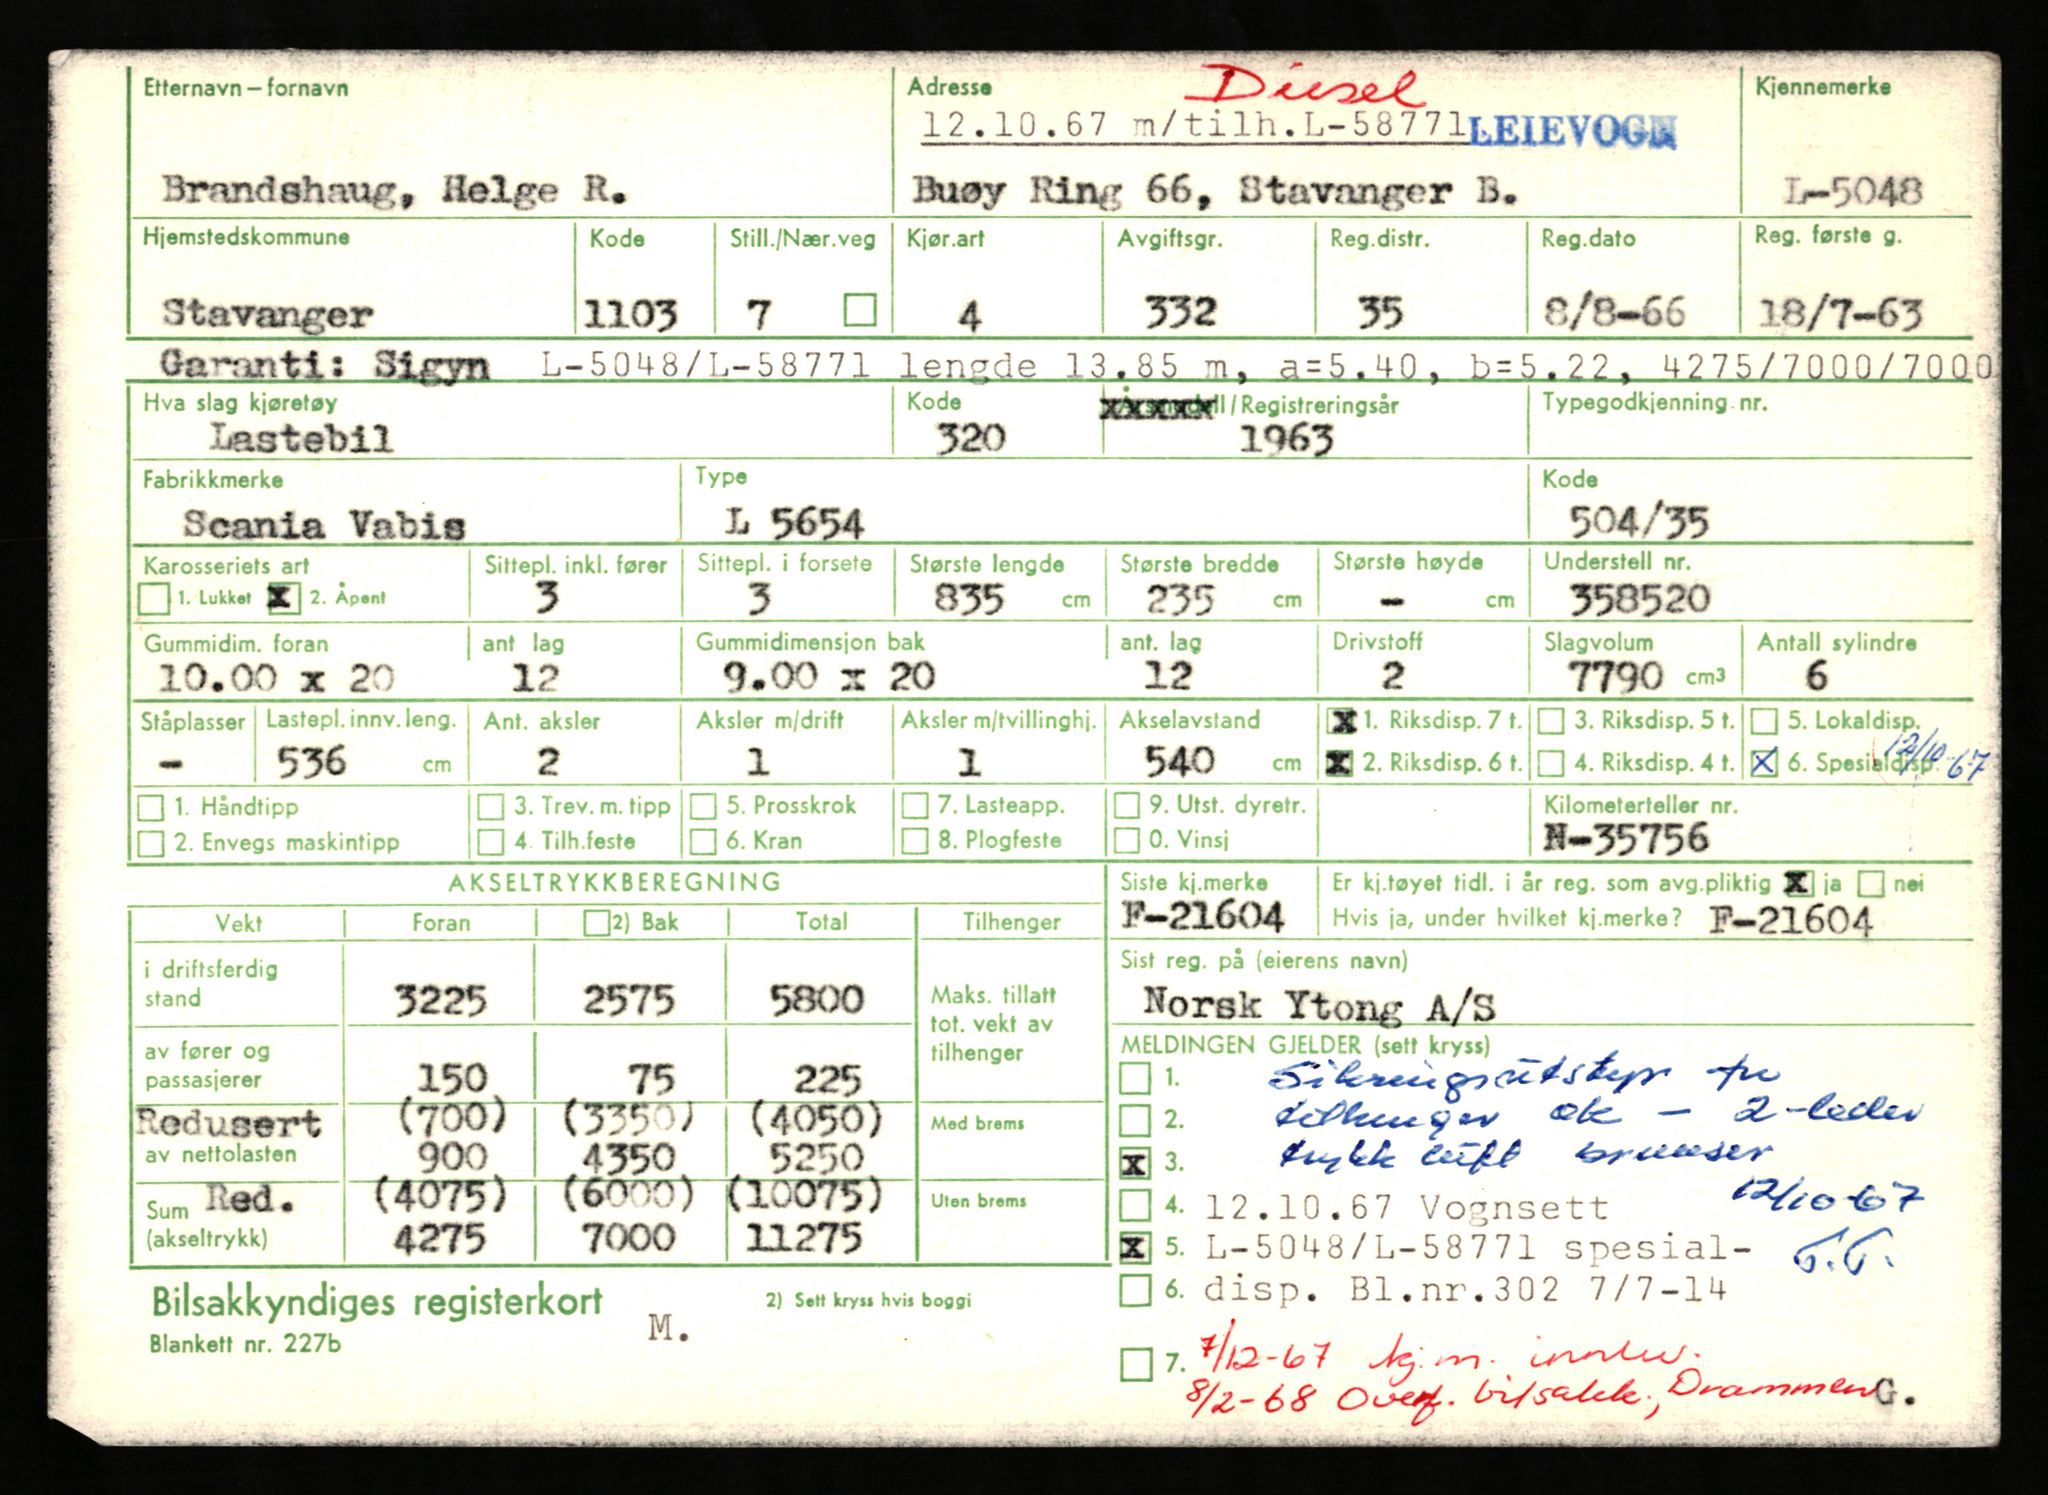 Etternavn – fornavn Adresse Diesel Kjennemerke
12.10.67 m/tilh.L-58771 LEIEVOGN
Brandshaug, Helge R. Buøy Ring 66, Stavanger B. L-5048
Hjemstedskommune Kode Still./Nær.veg Kjør.art Avgiftsgr. Reg.distr. Reg.dato Reg. første g.
Stavanger 1103 7 4 332 35 8/8-66 18/7-63
Garanti: Sigyn L-5048/L-58771 lengde 13.85 m, a=5.40, b=5.22, 4275/7000/7000
Hva slag kjøretøy Kode Årsmodell/Registreringsår Typegodkjenning nr.
Lastebil 320 1963
Fabrikkmerke Type Kode
Scania Vabis L 5654 504/35
Karosseriets art Sittepl. inkl. fører Sittepl. i forsete Største lengde Største bredde Største høyde Understell nr.
1. Lukket X 2. Åpent 3 3 835 cm 235 cm - cm 358520
Gummidim. foran ant lag Gummidimensjon bak ant. lag Drivstoff Slagvolum Antall sylindre
10.00 x 20 12 9.00 x 20 12 2 7790 cm3 6
Ståplasser Lastepl. innv. leng. Ant. aksler Aksler m/drift Aksler m/tvillinghj. Akselavstand X 1. Riksdisp. 7 t. 3. Riksdisp. 5 t. 5. Lokaldisp.
- 536 cm 2 1 1 540 cm X 2. Riksdisp. 6 t. 4. Riksdisp. 4 t. X 6. Spesialdisp. 12/10-67
1. Håndtipp 3. Trev. m. tipp 5. Prosskrok 7. Lasteapp. 9. Utst. dyretr. Kilometerteller nr.
2. Envegs maskintipp 4. Tilh.feste 6. Kran 8. Plogfeste 0. Vinsj N-35756
AKSELTRYKKBEREGNING Siste kj.merke Er kj.tøyet tidl. i år reg. som avg.pliktig X ja nei
Vekt Foran 2) Bak Total Tilhenger F-21604 Hvis ja, under hvilket kj.merke? F-21604
i driftsferdig stand 3225 2575 5800 Maks. tillatt tot. vekt av tilhenger Sist reg. på (eierens navn)
Norsk Ytong A/S
av fører og passasjerer 150 75 225 MELDINGEN GJELDER (sett kryss)
1. Sikringsutstyr for
Redusert (700) (3350) (4050) Med brems 2. tilhenger ok - 2-leder
av nettolasten 900 4350 5250 X 3. trykk luft bremser
Sum Red. (4075) (6000) (10075) Uten brems 4. 12.10.67 Vognsett 12/10-67
(akseltrykk) 4275 7000 11275 X 5. L-5048/L-58771 spesial-
6. disp. Bl.nr.302 7/7-14
Bilsakkyndiges registerkort M. 2) Sett kryss hvis boggi
Blankett nr. 227b
7. 7/12-67 kj.m. innlev.
8/2-68 Overf. bilsakk., Drammen G.